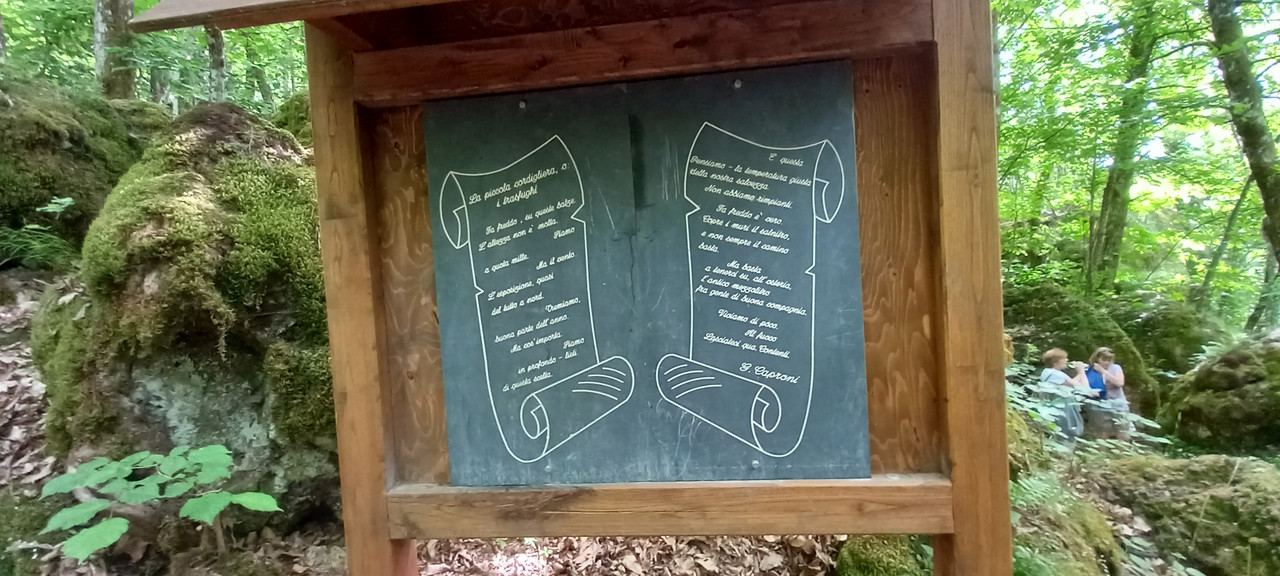 La piccola cordigliera, o:
i trasfughi
Fa freddo, su queste balze.
L'altezza non è molta.
Siamo
a quota mille. Ma il vento.
L'esposizione, quasi
del tutto a nord.
Tremiamo,
buona parte dell'anno.
Ma cos'importa.
Siamo
in profondo - lieti
di questa scelta.
E' questa
Pensiamo - la temperatura giusta
della nostra salvezza.
Non abbiamo rimpianti.
Fa freddo è vero.
Copre i muri il salnitro,
e non sempre il camino
basta.
Ma basta
a tenerci su, all'osteria,
l'antico mezzolitro
fra gente di buona compagnia.
Viviamo di poco.
Al fuoco
Lasciateci qua. Contenti.
G. Caproni